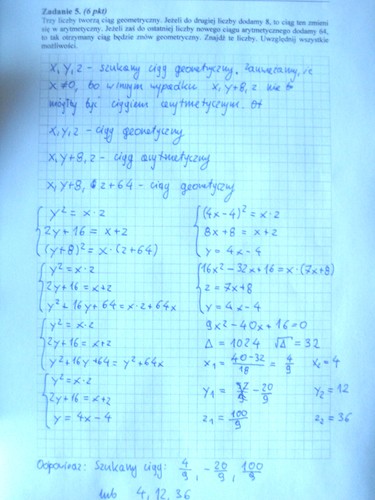 Zadanie 5. (6 pkt)
Trzy liczby tworzą ciąg geometryczny. Jeżeli do drugiej liczby dodamy 8, to ciąg ten zmieni
się w arytmetyczny. Jeżeli zaś do ostatniej liczby nowego ciągu arytmetycznego dodamy 64,
to tak otrzymany ciąg będzie znów geometryczny. Znajdź te liczby. Uwzględnij wszystkie
możliwości.
x, y, z - szukany ciąg geometryczny. Zauważamy, że
x ≠ 0, bo w innym wypadku x, y+8, z nie
mógłby być ciągiem arytmetycznym.
x, y, z - ciąg geometryczny
x, y+8, z - ciąg arytmetyczny
x, y+8, z+64 - ciąg geometryczny
y² = x·z
2y+16 = x+z
(y+8)² = x·(z+64)
y² = x·z
2y+16 = x+z
y²+16y+64 = x·z+64x
y² = x·z
2y+16 = x+z
y²+16y+64 = y²+64x
y² = x·z
2y+16 = x+z
y = 4x-4
(4x-4)² = x·z
8x+8 = x+z
y = 4x-4
16x²-32x+16 = x·(7x+8)
z = 7x+8
y = 4x-4
9x²-40x+16=0
Δ = 1024 √Δ = 32
x₁ = 40-32/18 = 4/9 x₂ = 4
y₁ = -20/9 y₂ = 12
z₁ = 100/9 z₂ = 36
Odpowiedź: Szukany ciąg: 4/9, -20/9, 100/9
lub 4, 12, 36